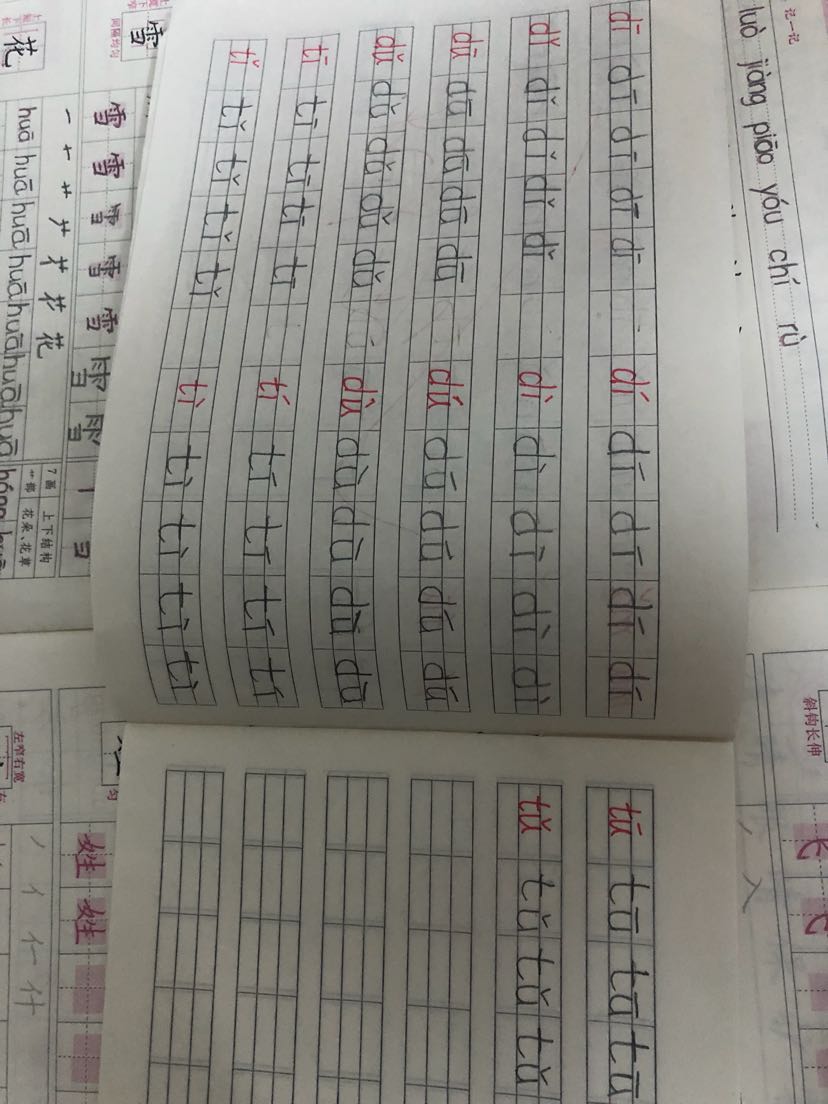 记一记
luò jiàng piāo yóu chí rù
斜钩长伸
dī dī dī dī dī dí dí dí dí dí
dǐ dǐ dǐ dǐ dǐ dì dì dì dì dì
dū dū dū dū dū dú dú dú dú dú
dǔ dǔ dǔ dǔ dǔ dù dù dù dù dù
tī tī tī tī tī tí tí tí tí tí
tǐ tǐ tǐ tǐ tǐ tì tì tì tì tì
tū tū tū tū
tǔ tǔ tǔ tǔ
雪
间隔均匀
雪 雪 雪 雪 雪
花
7画 上下结构
艹部 花朵、花草
huā huā huā huā huā huā huā
姓 姓
左窄右宽